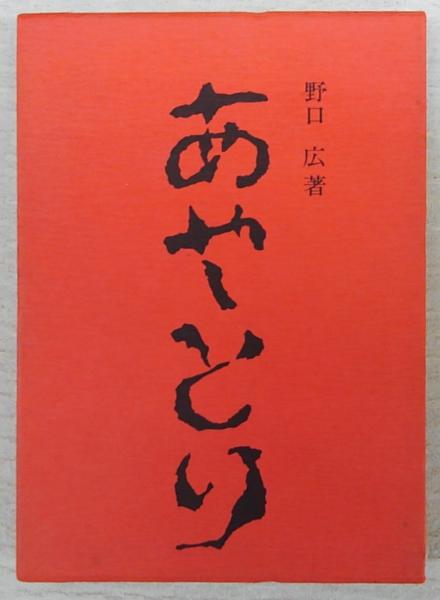 野口 広著
あやとり